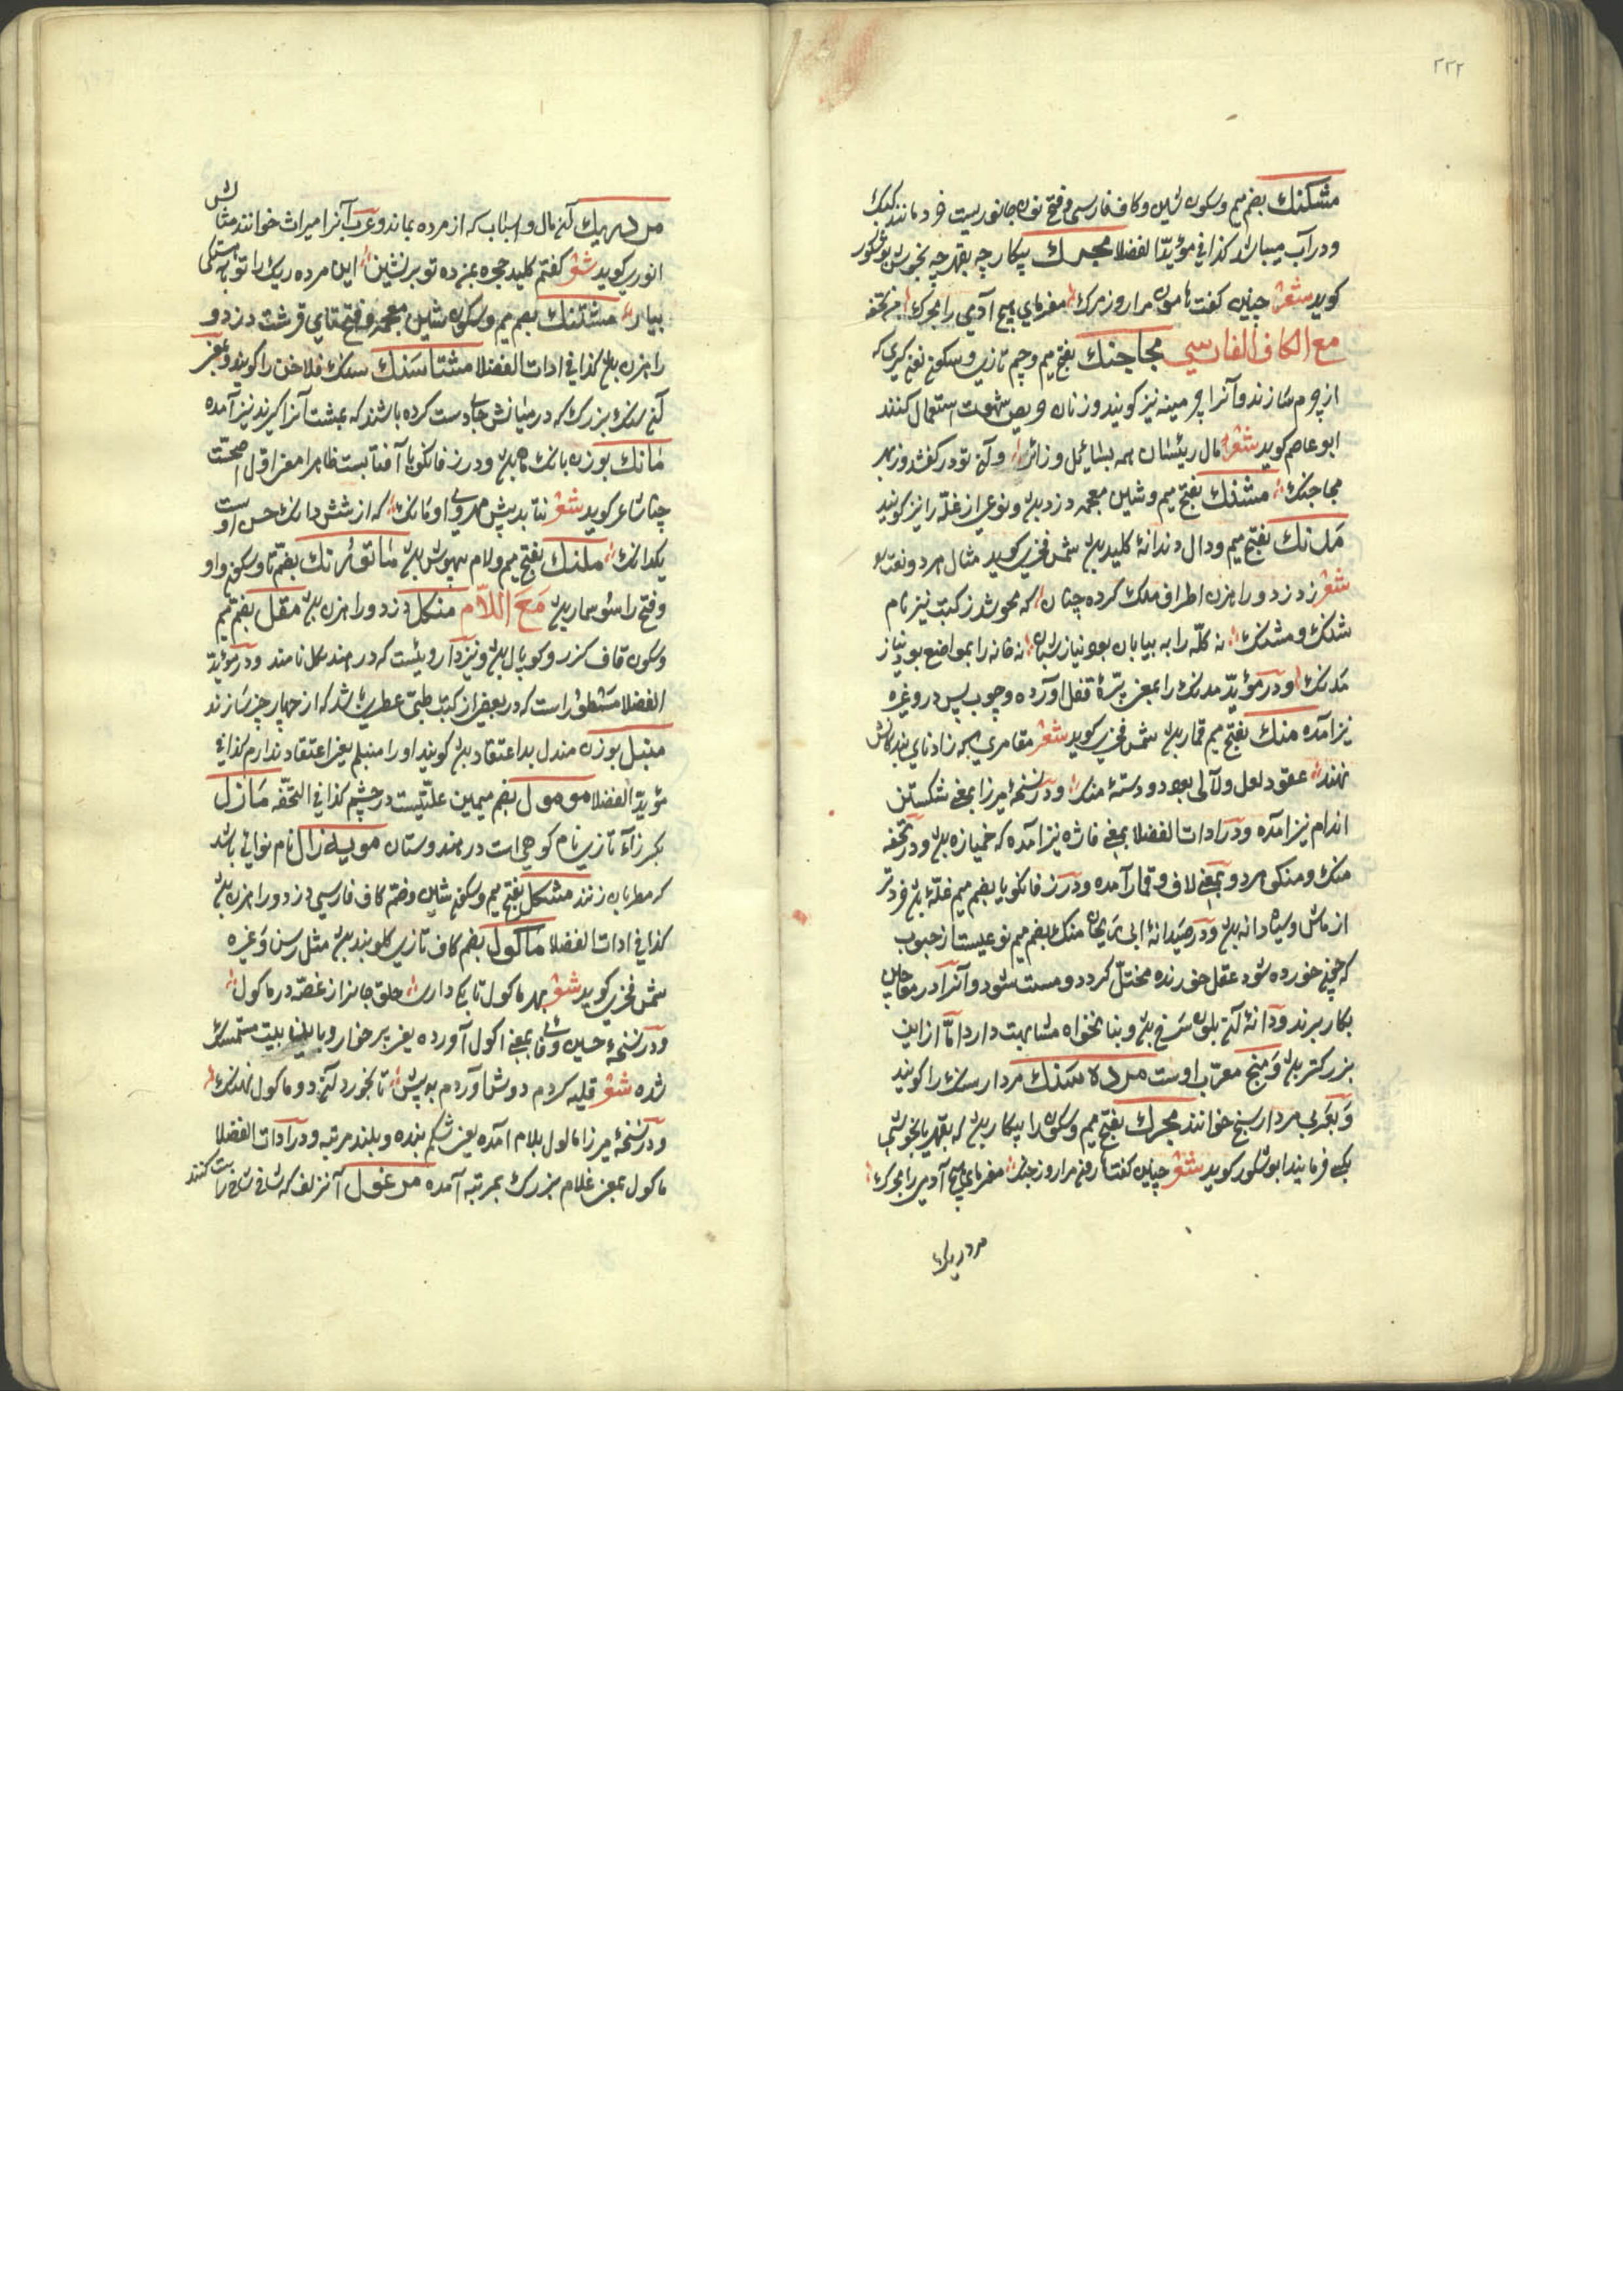 ٢٢٢
مشکنک بضم میم وسکون شین وکاف فارسی وفتح نون جانوریست خرد مانند کبک
ودر آب میباشد کذا فی مؤید الفضلا مجرک پیکار چه بقهر چه بخوش بوشکور
کوید شعر چنین کفت هامون مرا روز مرک مفرمای هیچ آدمی را مجرک من تحفه
مع الکاف الفارسی مجاجنک بفتح میم وجیم تازی وسکون نون کیری که
از چرم سازند وآنرا چرمینه نیز کویند وزنان حریص شهوت استعمال کنند
ابو عاصم کوید شعر مال رئیسان همه بسایل وزائر وآن تو در کفشدوز بهر
مجاجنک مشنک بفتح میم وشین معجمه دزد بود ونوعی از غله را نیز کویند
مدنک بفتح میم ودال دندانهٔ کلید بود شمس فخری کوید مثال مرد ونعت
شعر ز دزد وراهزن اطراف ملک کرده چنان که محو شد ز کتب نیز نام
شنک ومشنک نه کله را به بیابان بود نیاز شبان نه خانه را بمواضع بود نیاز
مدنک ودر مؤید مدنک را بمعنی پرهٔ قفل آورده وچوب پس در وغیره
نیز آمده منک بفتح میم قمار بود شمس فخری کوید شعر مقامری بجه زاد نای بند کانش
نهند عقود لعل ولآلی بعود ودستهٔ منک ودر نسخهٔ میرزا بمعنی شکستن
اندام نیز آمده ودر ادات الفضلا بمعنی فاژه نیز آمده که خمیازه بود ودر تحفه
منک ومنکی مرد وبمعنی لاف وقمار آمده ودر زفانکویا بضم میم غله بود فردتر
از ماش وسیاه دانه بود ودر صیدانهٔ ابی ریحان منک بضم میم نوعیست از حبوب
که چون خورده شود عقل خورنده مختل کردد ومست شود وآنرا در معاجین
بکار برند ودانهٔ آن بلون سرخ بود وبنانخواه مشابهت دارد اما از این
بزرکتر بود ومنج معرب اوست مرداسنک مردارسنک را کویند
وبعربی مردارسنج خوانند مجرک بفتح میم وسکون را پیکار بود که بقهر یا بخوشی
یکی فرمایند ابو شکور کوید شعر چنین کفت هارون مرا روز جنک مفرمای هیچ آدمی را مجرک
مرده ریک
مردریک آن مال واسباب که از مرده بماند وعرب آنرا میراث خوانند مثالش
انوری کوید شعر کفتم کلید حجره بمن ده تو برنشین این مرده ریک را تو بآهستکی
بیار مشتنک بضم میم وسکون شین معجمه وفتح تای قرشت دزد و
راهزن بود کذا فی ادات الفضلا مشتاسنک سنک فلاخن را کویند وبمعنی
آن سنک بزرک که در میانش جای دست کرده باشند که بمشت آنرا کیرند نیز آمده
مانک بوزن بانک ماه بود ودر زفانکویا آفتابست ظاهرا معنی اول اصحست
چنانکه شاعر کوید شعر نتابد پیش مهروی او مانک که از شش دانک حسن اوست
یکدانک ملنک بفتح میم ولام بیهوش بود ماتورنک بضم تا وسکون واو
وفتح را سوسمار بود مع اللام منکل دزد وراهزن بود مقل بضم میم
وسکون قاف کزر وکوپال بود ونیز دارویست که در هند کمل نامند ودر مؤید
الفضلا مسطور است که در بعضی از کتب طبی عطری باشد که از چهار چیز سازند
منبل بوزن مندل بد اعتقاد بود کویند او را منبلم یعنی اعتقاد ندارم کذا فی
مؤید الفضلا مومول بضم میمین علتیست در چشم کذا فی التحفه مازل
بکسر زاء تازی نام کوهی است در هندوستان مویه زال نام نوائی باشد
که مطربان زنند مشکل بفتح میم وسکون شین وضم کاف فارسی دزد وراهزن بود
کذا فی ادات الفضلا ماکول بضم کاف تازی کلوبند بود مثل رسن وغیره
شمس فخری کوید شعر بهر ماکول تا بکی داری حلق جانرا ز غصه در ماکول
ودر نسخهٔ حسین وفائی بمعنی اکول آورده یعنی پرخوار وباین بیت متمسک
شده شعر قلیه کردم دوش آوردم به پیش تا بخورد آن دو ماکول نهنک
ودر نسخهٔ میرزا مالول بلام آمده یعنی شکم بنده وبلند مرتبه ودر ادات الفضلا
ماکول بمعنی غلام بزرک بمرتبه آمده مرغول آن زلف که شاخ شاخ راست کنند